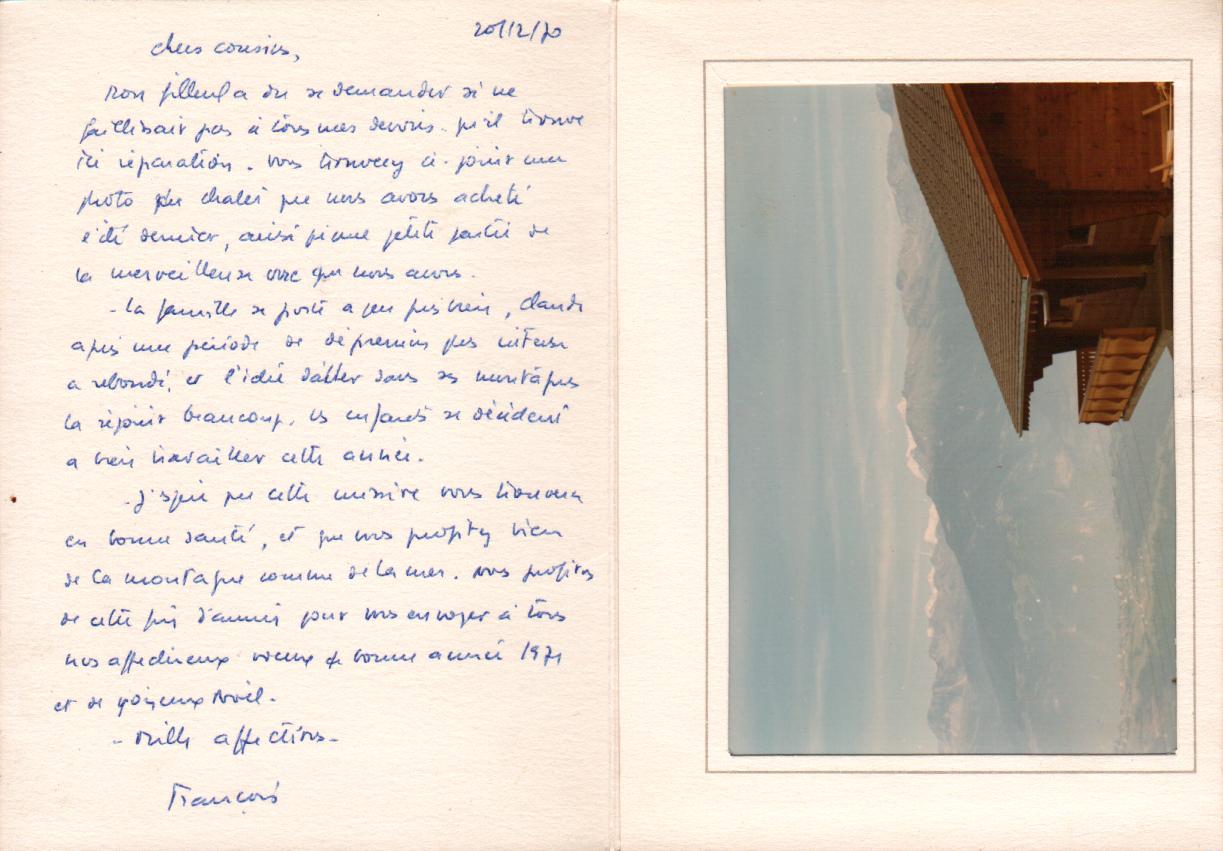 20/12/70
chers cousins,
mon filleul a du se demander si ne
faillissait pas à tous mes devoirs. qu'il trouve
ici réparation. vous trouverez ci-joint une
photo du chalet que nous avons acheté
l'été dernier, ainsi qu'une petite partie de
la merveilleuse vue que nous avons.
- La famille se porte a peu près bien, Claude
après une période de dépression très intense
a rebondi, et l'idée d'aller dans ses montagnes
la réjouit beaucoup. les enfants se décident
a bien travailler cette année.
- J'espère que cette missive vous trouvera
en bonne santé, et que vous profitez bien
de la montagne comme de la mer. nous profitons
de cette fin d'année pour vous envoyer à tous
nos affectueux voeux de bonne année 1971
et de joyeux Noël.
- Mille affections -
François